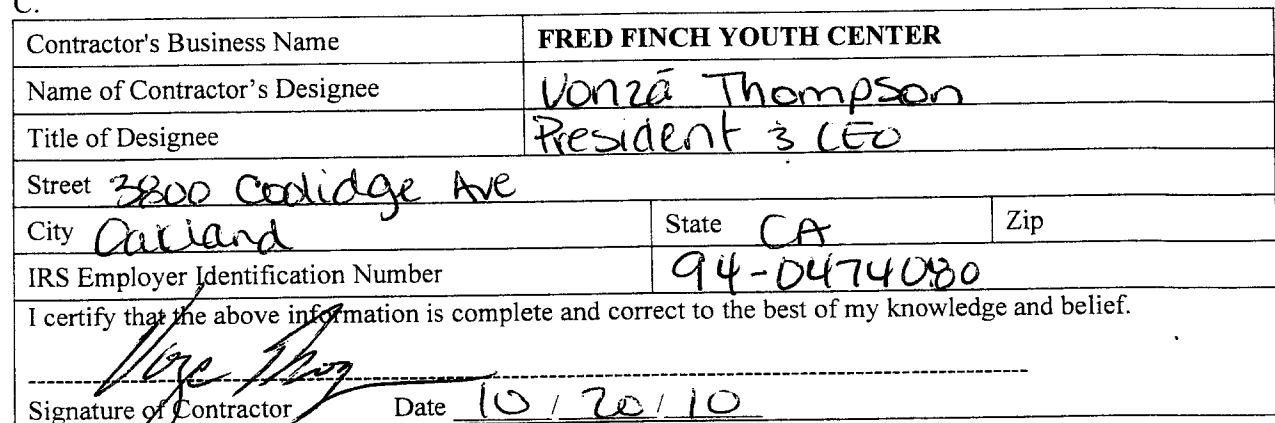 C.
Contractor's Business Name FRED FINCH YOUTH CENTER
Name of Contractor's Designee Vonzá Thompson
Title of Designee President & CEO
Street 3800 Coolidge Ave
City Oakland State CA Zip
IRS Employer Identification Number 94-0474080
I certify that the above information is complete and correct to the best of my knowledge and belief.
Signature of Contractor Date 10 / 20 / 10